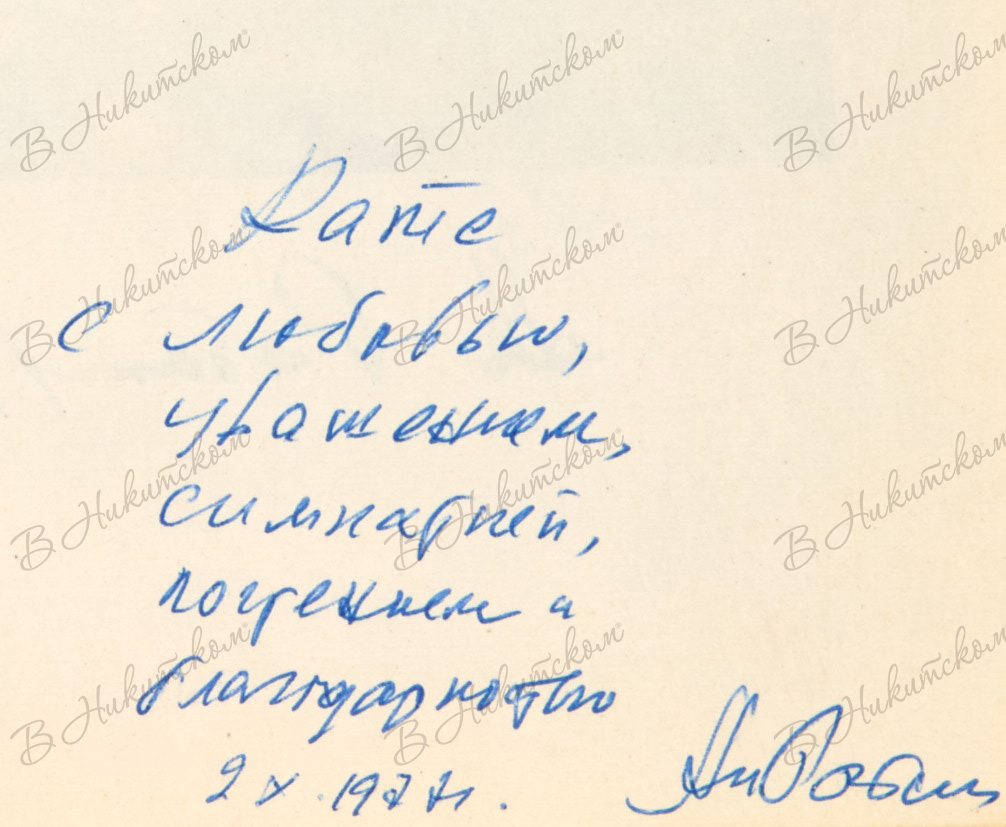 В Никитском® В Никитском® В Никитском®
Кате
В Никитском® В Никитском® В Никитском®
с любовью,
уважением,
В Никитском® В Никитском® В Никитском®
симпатией,
почтением и
В Никитском® В Никитском® В Никитском®
благодарностью
2 X. 1977 г.